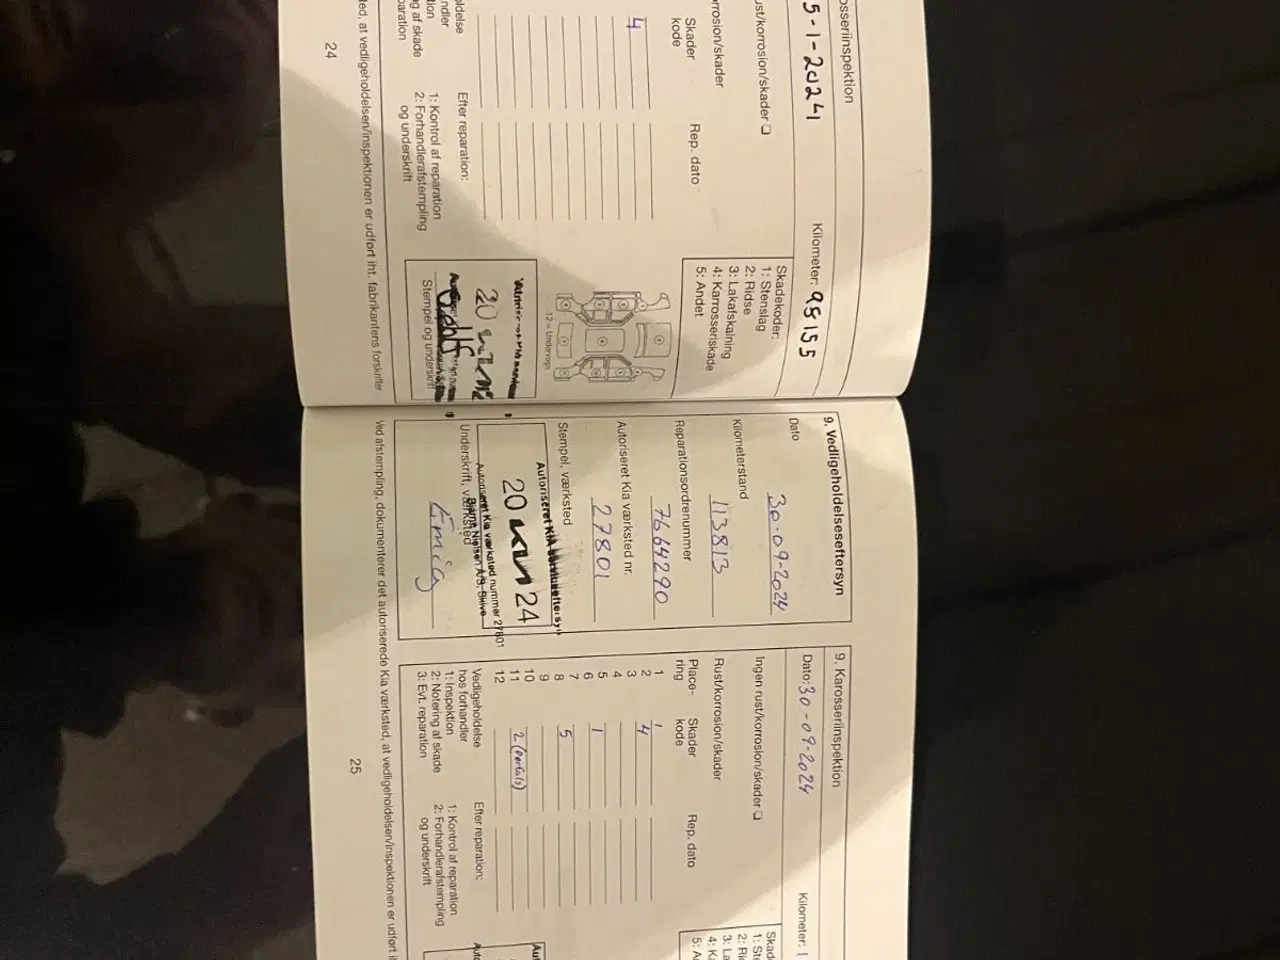 osseriinspektion
5-1-2024
Kilometer: 95155
ust/korrosion/skader
rrosion/skader
Skader
kode
Rep. dato
4
Skadekoder:
1: Stenslag
2: Ridse
3: Lakafskalning
4: Karrosseriskade
5: Andet
12 = Undervogn
oldelse
ndler
tion
g af skade
paration
Efter reparation:
1: Kontrol af reparation
2: Forhandlerafstempling
og underskrift
20
Stempel og underskrift
ted, at vedligeholdelsen/inspektionen er udført iht. fabrikantens forskrifter
24
9. Vedligeholdelseseftersyn
Dato
30-09-2024
Kilometerstand
113813
Reparationsordrenummer
7664290
Autoriseret Kia værksted nr.
27801
Stempel, værksted
Autoriseret KIA
20 24
Autoriseret Kia værksted nummer 27801
Bjarne Nielsen A/S. Skive
Underskrift, værksted
Ved afstempling, dokumenterer det autoriserede Kia værksted, at vedligeholdelsen/inspektionen er udført
9. Karosseriinspektion
Dato: 30-09-2024
Kilometer: 1
Ingen rust/korrosion/skader
Rust/korrosion/skader
Place-
ring
Skader
kode
Rep. dato
1
2 4
3
4
5 1
6
7
8 5
9
10
11
12
Vedligeholdelse
hos forhandler
1: Inspektion
2: Notering af skade
3: Evt. reparation
Efter reparation:
1: Kontrol af reparation
2: Forhandlerafstempling
og underskrift
25